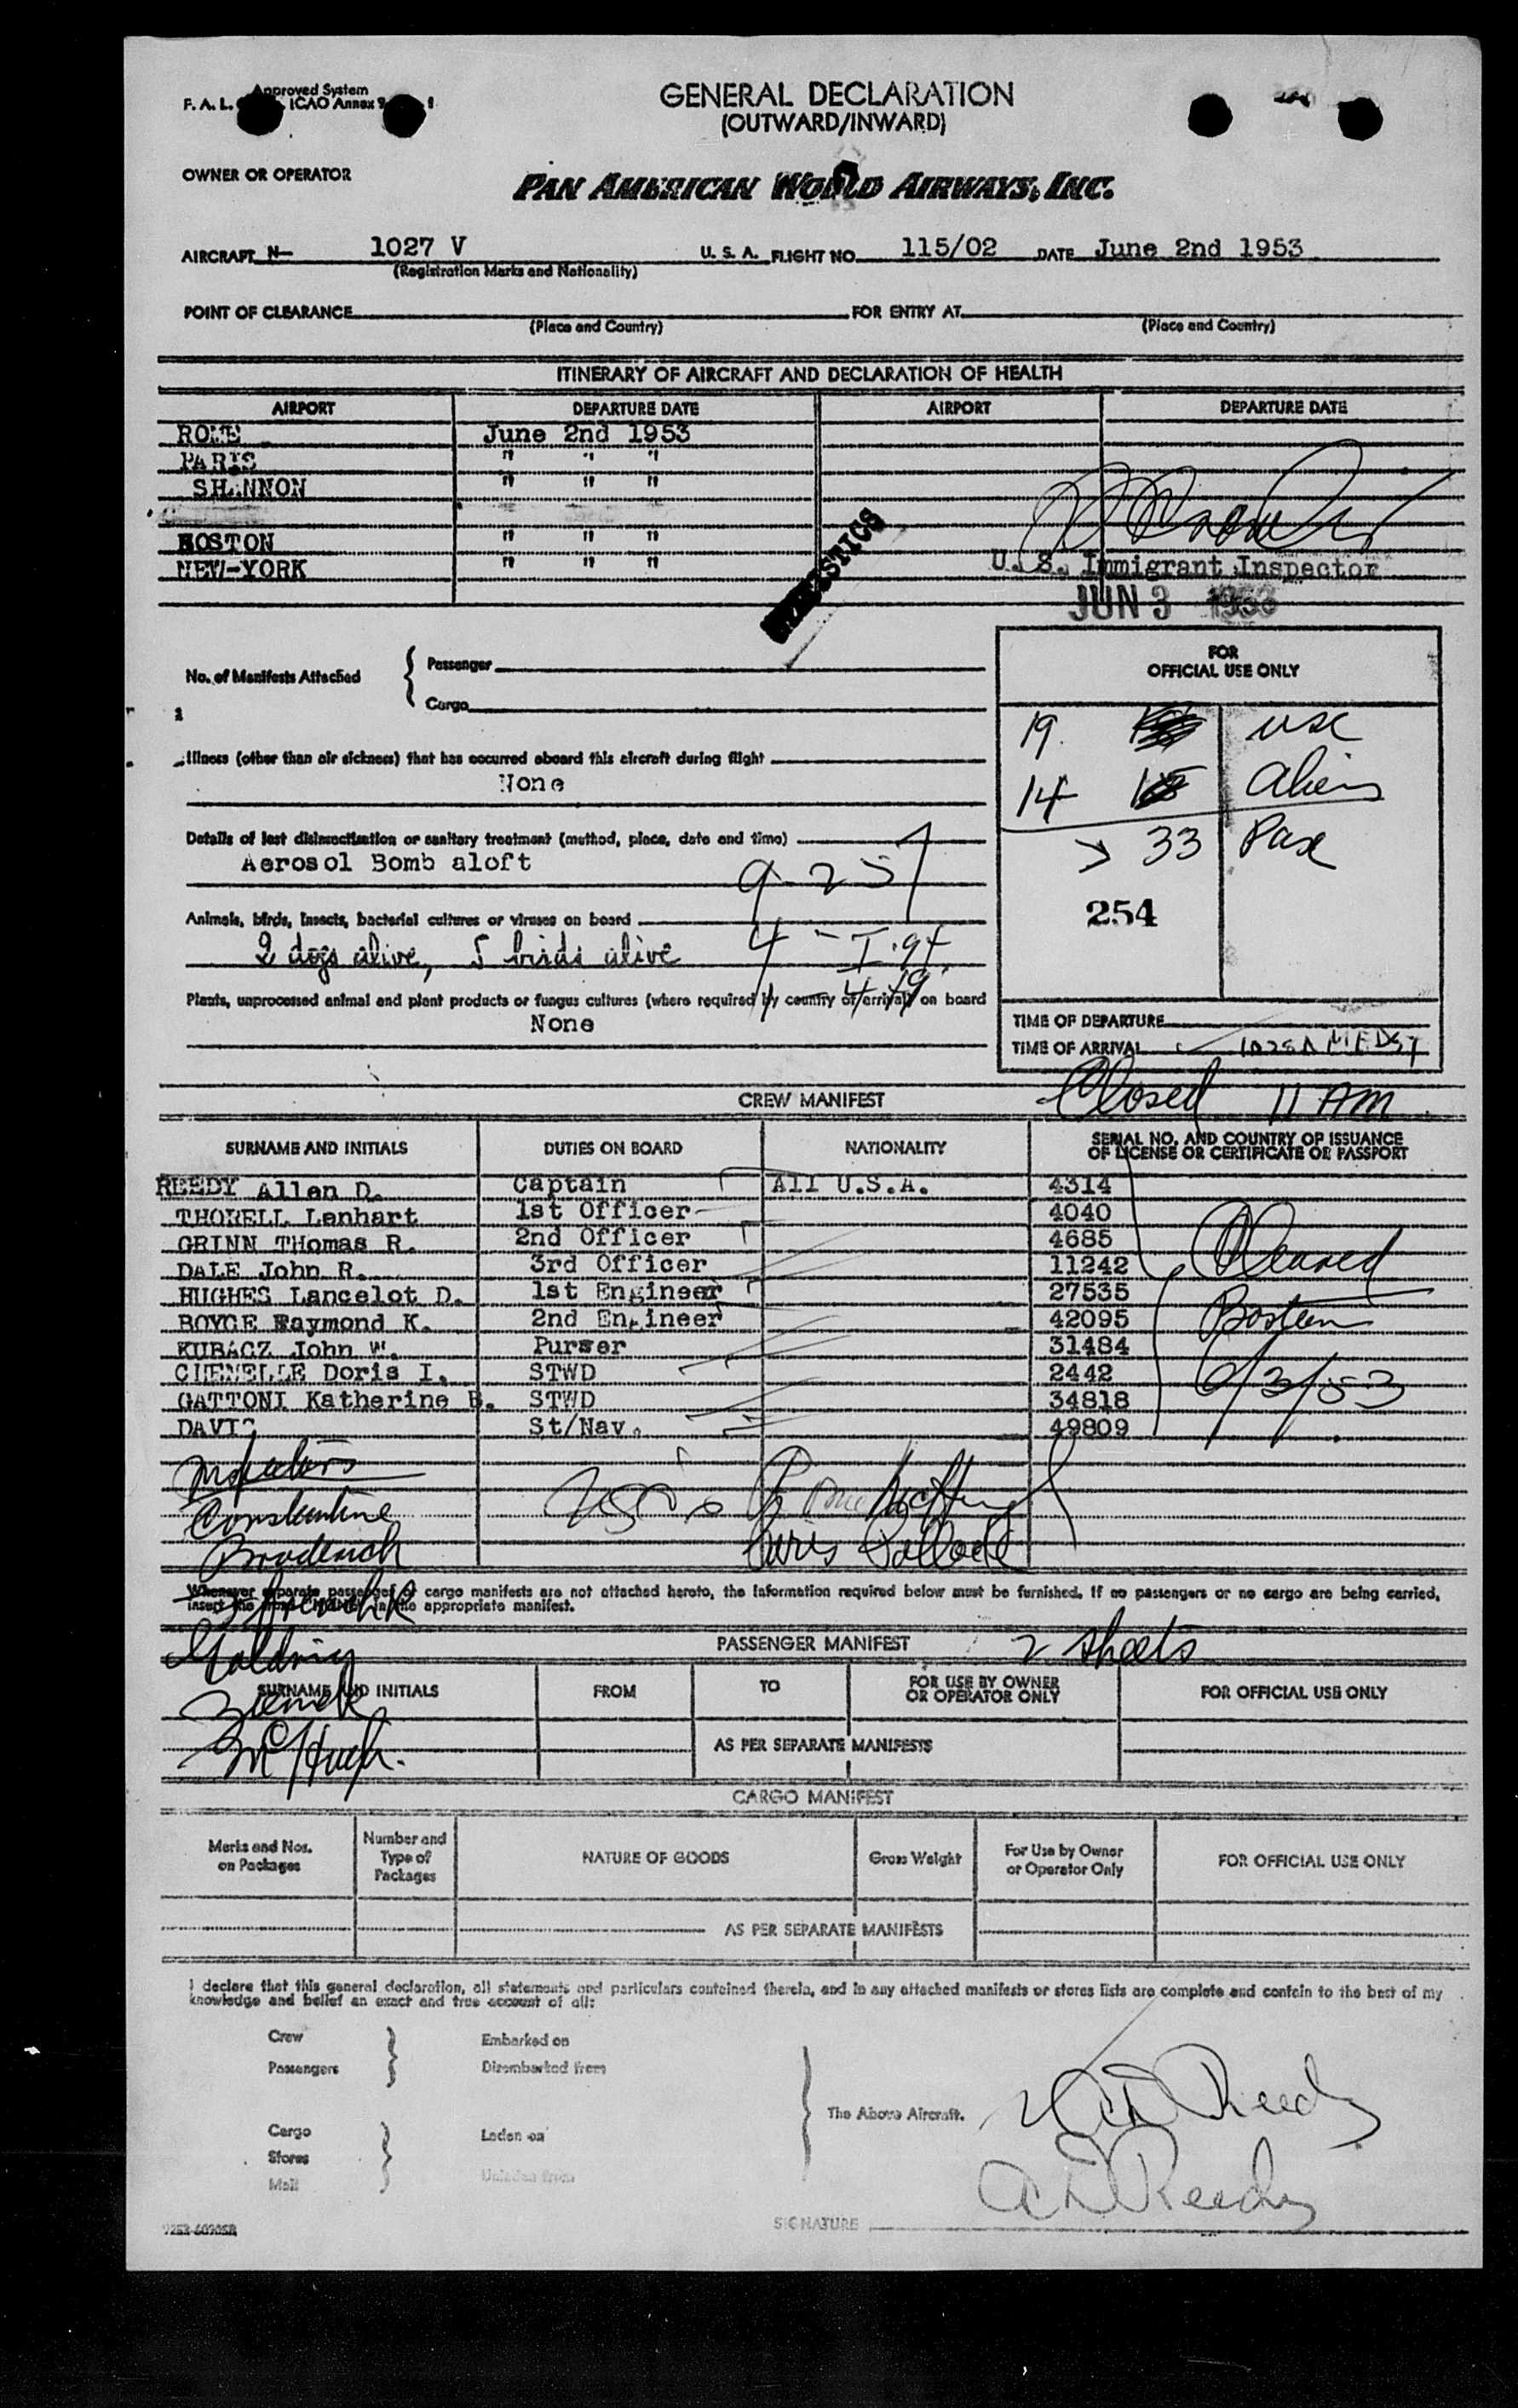 Approved System
F. A. L. ICAO Annex 9
GENERAL DECLARATION
(OUTWARD/INWARD)
OWNER OR OPERATOR
PAN AMERICAN WORLD AIRWAYS, INC.
AIRCRAFT N- 1027 V U. S. A. FLIGHT NO. 115/02 DATE June 2nd 1953
(Registration Marks and Nationality)
POINT OF CLEARANCE FOR ENTRY AT
(Place and Country) (Place and Country)
ITINERARY OF AIRCRAFT AND DECLARATION OF HEALTH
AIRPORT DEPARTURE DATE AIRPORT DEPARTURE DATE
ROME June 2nd 1953
PARIS " " "
SHANNON " " "
BOSTON " " "
NEW-YORK " " "
STATISTICS
U. S. Immigrant Inspector
JUN 3 1953
No. of Manifests Attached { Passenger
Cargo
FOR
OFFICIAL USE ONLY
19 USC
14 Aliens
33 Pax
254
Illness (other than air sickness) that has occurred aboard this aircraft during flight
None
Details of last disinsectisation or sanitary treatment (method, place, date and time)
Aerosol Bomb aloft
Animals, birds, insects, bacterial cultures or viruses on board
2 dogs alive, 5 birds alive
Plants, unprocessed animal and plant products or fungus cultures (where required by country of arrival) on board
None
TIME OF DEPARTURE
TIME OF ARRIVAL
Closed 11 AM
CREW MANIFEST
SURNAME AND INITIALS DUTIES ON BOARD NATIONALITY SERIAL NO. AND COUNTRY OF ISSUANCE
OF LICENSE OR CERTIFICATE OR PASSPORT
REEDY Allen D. Captain All U.S.A. 4314
THORELL Lenhart 1st Officer 4040
GRINN THomas R. 2nd Officer 4685
DALE John R. 3rd Officer 11242
HUGHES Lancelot D. 1st Engineer 27535
BOYCE Raymond K. 2nd Engineer 42095
KUBACZ John W. Purser 31484
CHENELLE Doris I. STWD 2442
GATTONI Katherine B. STWD 34818
DAVIS St/Nav. 49809
Cleared
Boston
6/3/53
Inspectors
Constantine
Broderick
Whenever separate passenger or cargo manifests are not attached hereto, the information required below must be furnished. If no passengers or no cargo are being carried,
insert the in the appropriate manifest.
PASSENGER MANIFEST 2 sheets
SURNAME AND INITIALS FROM TO FOR USE BY OWNER
OR OPERATOR ONLY FOR OFFICIAL USE ONLY
McHugh.
AS PER SEPARATE MANIFESTS
CARGO MANIFEST
Marks and Nos.
on Packages Number and
Type of
Packages NATURE OF GOODS Gross Weight For Use by Owner
or Operator Only FOR OFFICIAL USE ONLY
AS PER SEPARATE MANIFESTS
I declare that this general declaration, all statements and particulars contained therein, and in any attached manifests or stores lists are complete and contain to the best of my
knowledge and belief an exact and true account of all:
Crew Embarked on
Passengers Disembarked from
The Above Aircraft.
Cargo Laden on
Stores
Mail Unladen from
A D Reedy
A D Reedy
SIGNATURE